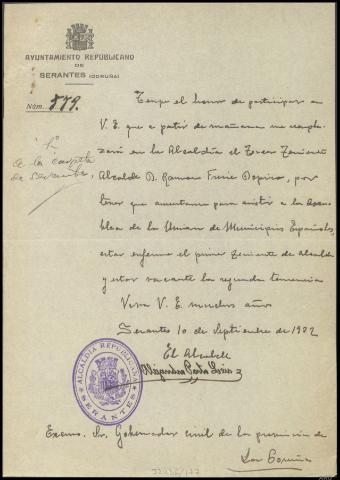 AYUNTAMIENTO REPUBLICANO
DE
SERANTES (CORUÑA)
Núm. 879.
Tengo el honor de participar a
V. E. que a partir de mañana me reempla-
zará en la Alcaldía el Tercer Teniente
Alcalde D. Ramon Freire, por
tener que ausentarme para asistir a la Asam-
blea de la Union de Municipios Españoles,
estar enfermo el primer teniente de alcalde
y estar vacante la segunda tenencia
Viva V. E. muchos años
Serantes 10 de Septiembre de 1932
El Alcalde
Alejandro Porto Leis
a la carpeta
de Serantes
ALCALDIA REPUBLICANA
SERANTES
Excmo. Sr. Gobernador civil de la provincia de
La Coruña